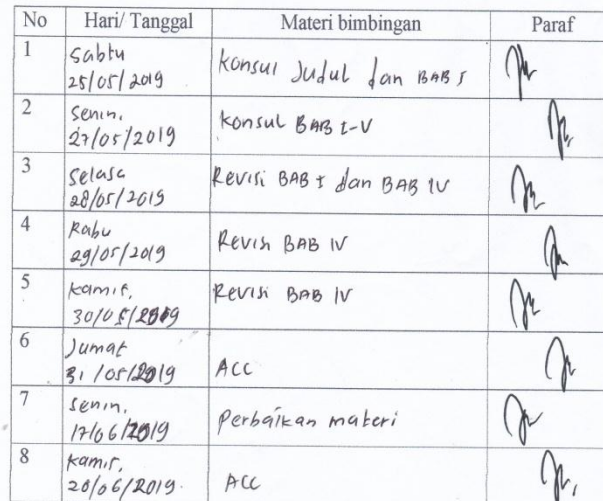 No Hari/ Tanggal Materi bimbingan Paraf
1 Sabtu
25/05/2019 Konsul Judul dan BAB I
2 Senin,
27/05/2019 Konsul BAB I-V
3 Selasa
28/05/2019 Revisi BAB I dan BAB IV
4 Rabu
29/05/2019 Revisi BAB IV
5 Kamis,
30/05/2019 Revisi BAB IV
6 Jumat
31/05/2019 ACC
7 Senin,
17/06/2019 Perbaikan materi
8 Kamis,
20/06/2019. ACC